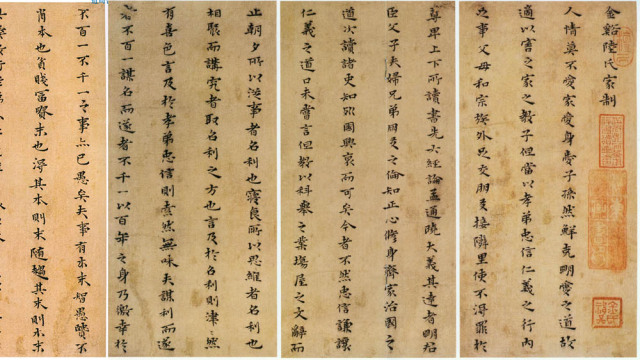 金谿陸氏家制
人情莫不愛家愛身愛子孫然鮮克明愛之道故
適以害之家之教子但當以孝弟忠信仁義之行內
之事父母和宗族外之交朋友接隣里使不得罪於
尊卑上下所讀書先六經論孟通曉大義其達者明君
臣父子夫婦兄弟朋友之倫知正心修身齊家治國之
道次讀諸史知歷國興衰而可矣今者不然忠信謙讓
仁義之道口未嘗言但教以科舉之業場屋之文辭而
止朝夕所以從事者名利也寢食所以思維者名利也
相聚而講究者取名利之方也言及於名利則津津然
有喜色言及於孝弟忠信則索然無味夫謀利而遂
者不百一謀名而遂者不千一以百年之身乃徼幸於
不百一不千一之事亦已愚矣夫事有本末知愚賢不
肖本也貧賤富貴末也得其本則末隨趨其本則亦末